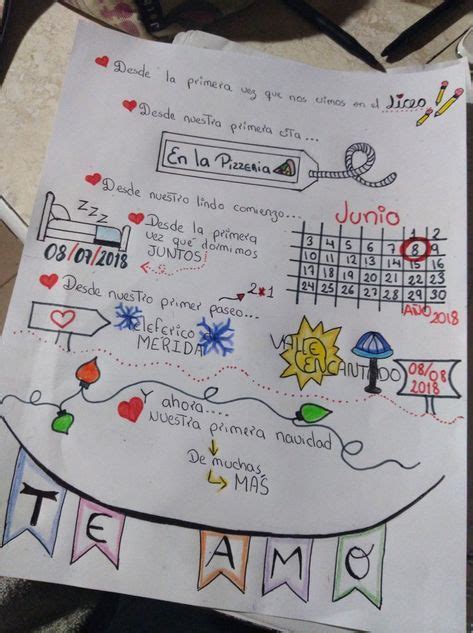 Desde la primera vez que nos vimos en el Liceo
Desde nuestra primera cita...
En la Pizzeria
Desde nuestro lindo comienzo...
Junio
1 2
3 4 5 6 7 8 9
10 11 12 13 14 15 16
17 18 19 20 21 22 23
24 25 26 27 28 29 30
AÑO 2018
ZZZ
08/07/2018
Desde la primera
vez que dormimos
JUNTOS!
Desde nuestro primer paseo...
2x1
Teleferico de
MERIDA
VALLE
ENCANTADO
08/08
2018
Y ahora....
Nuestra primera navidad
De muchas
MAS
TE AMO